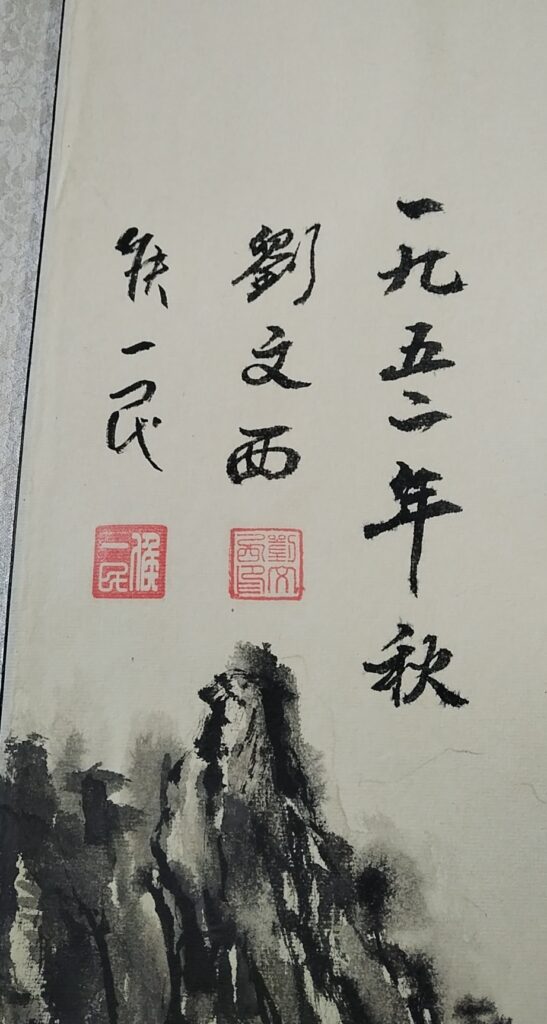 一九五二年秋
劉文西
侯一民
劉文西印
侯一民